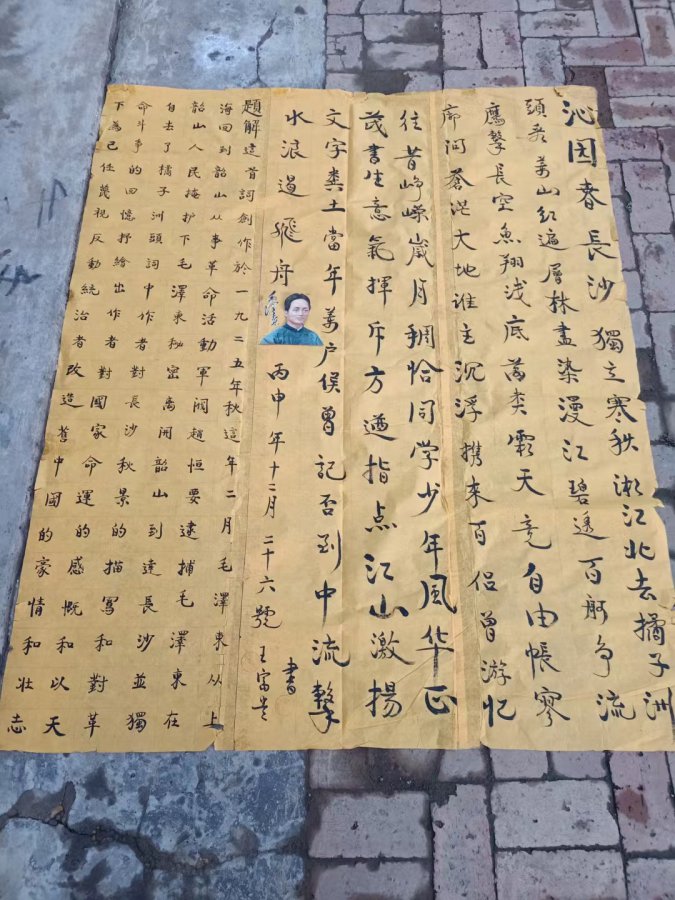 沁因春長沙 獨立寒秋湘江北去橘子洲
頭看萬山红遍層林盡染漫江碧透百舸争流
鷹擊長空魚翔浅底萬类霜天竞自由帳寥
廓问蒼茫大地谁主沉浮携来百侣曾游忆
往昔峥嵘歲月稠恰同学少年風华正
茂書生意氣揮斥方遒指点江山激揚
文字粪土當年萬户侯曾記否到中流擊
水浪遏飛舟
丙申年十二月二十六號 王富 書
題解這首詞創作於一九二五年秋這年二月毛澤東从上
海回到韶山从事革命活動軍閥趙恒要逮捕毛澤東在
韶山人民掩护下毛澤東秘密离開韶山到達長沙並獨
自去了橘子洲頭詞中作者對長沙秋景的描寫和對革
命斗争的回憶抒繪出作者對國家命運的感慨和以天
下為己任蔑視反動統治者改造舊中國的豪情和壯志